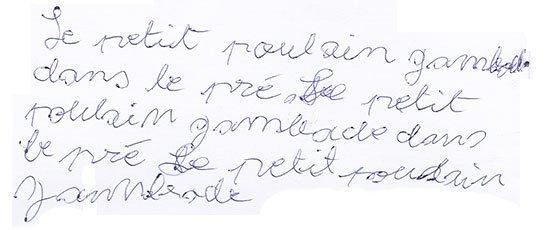 Le petit poulain gambade
dans le pré. Le petit
poulain gambade dans
le pré Le petit poulain
gambade